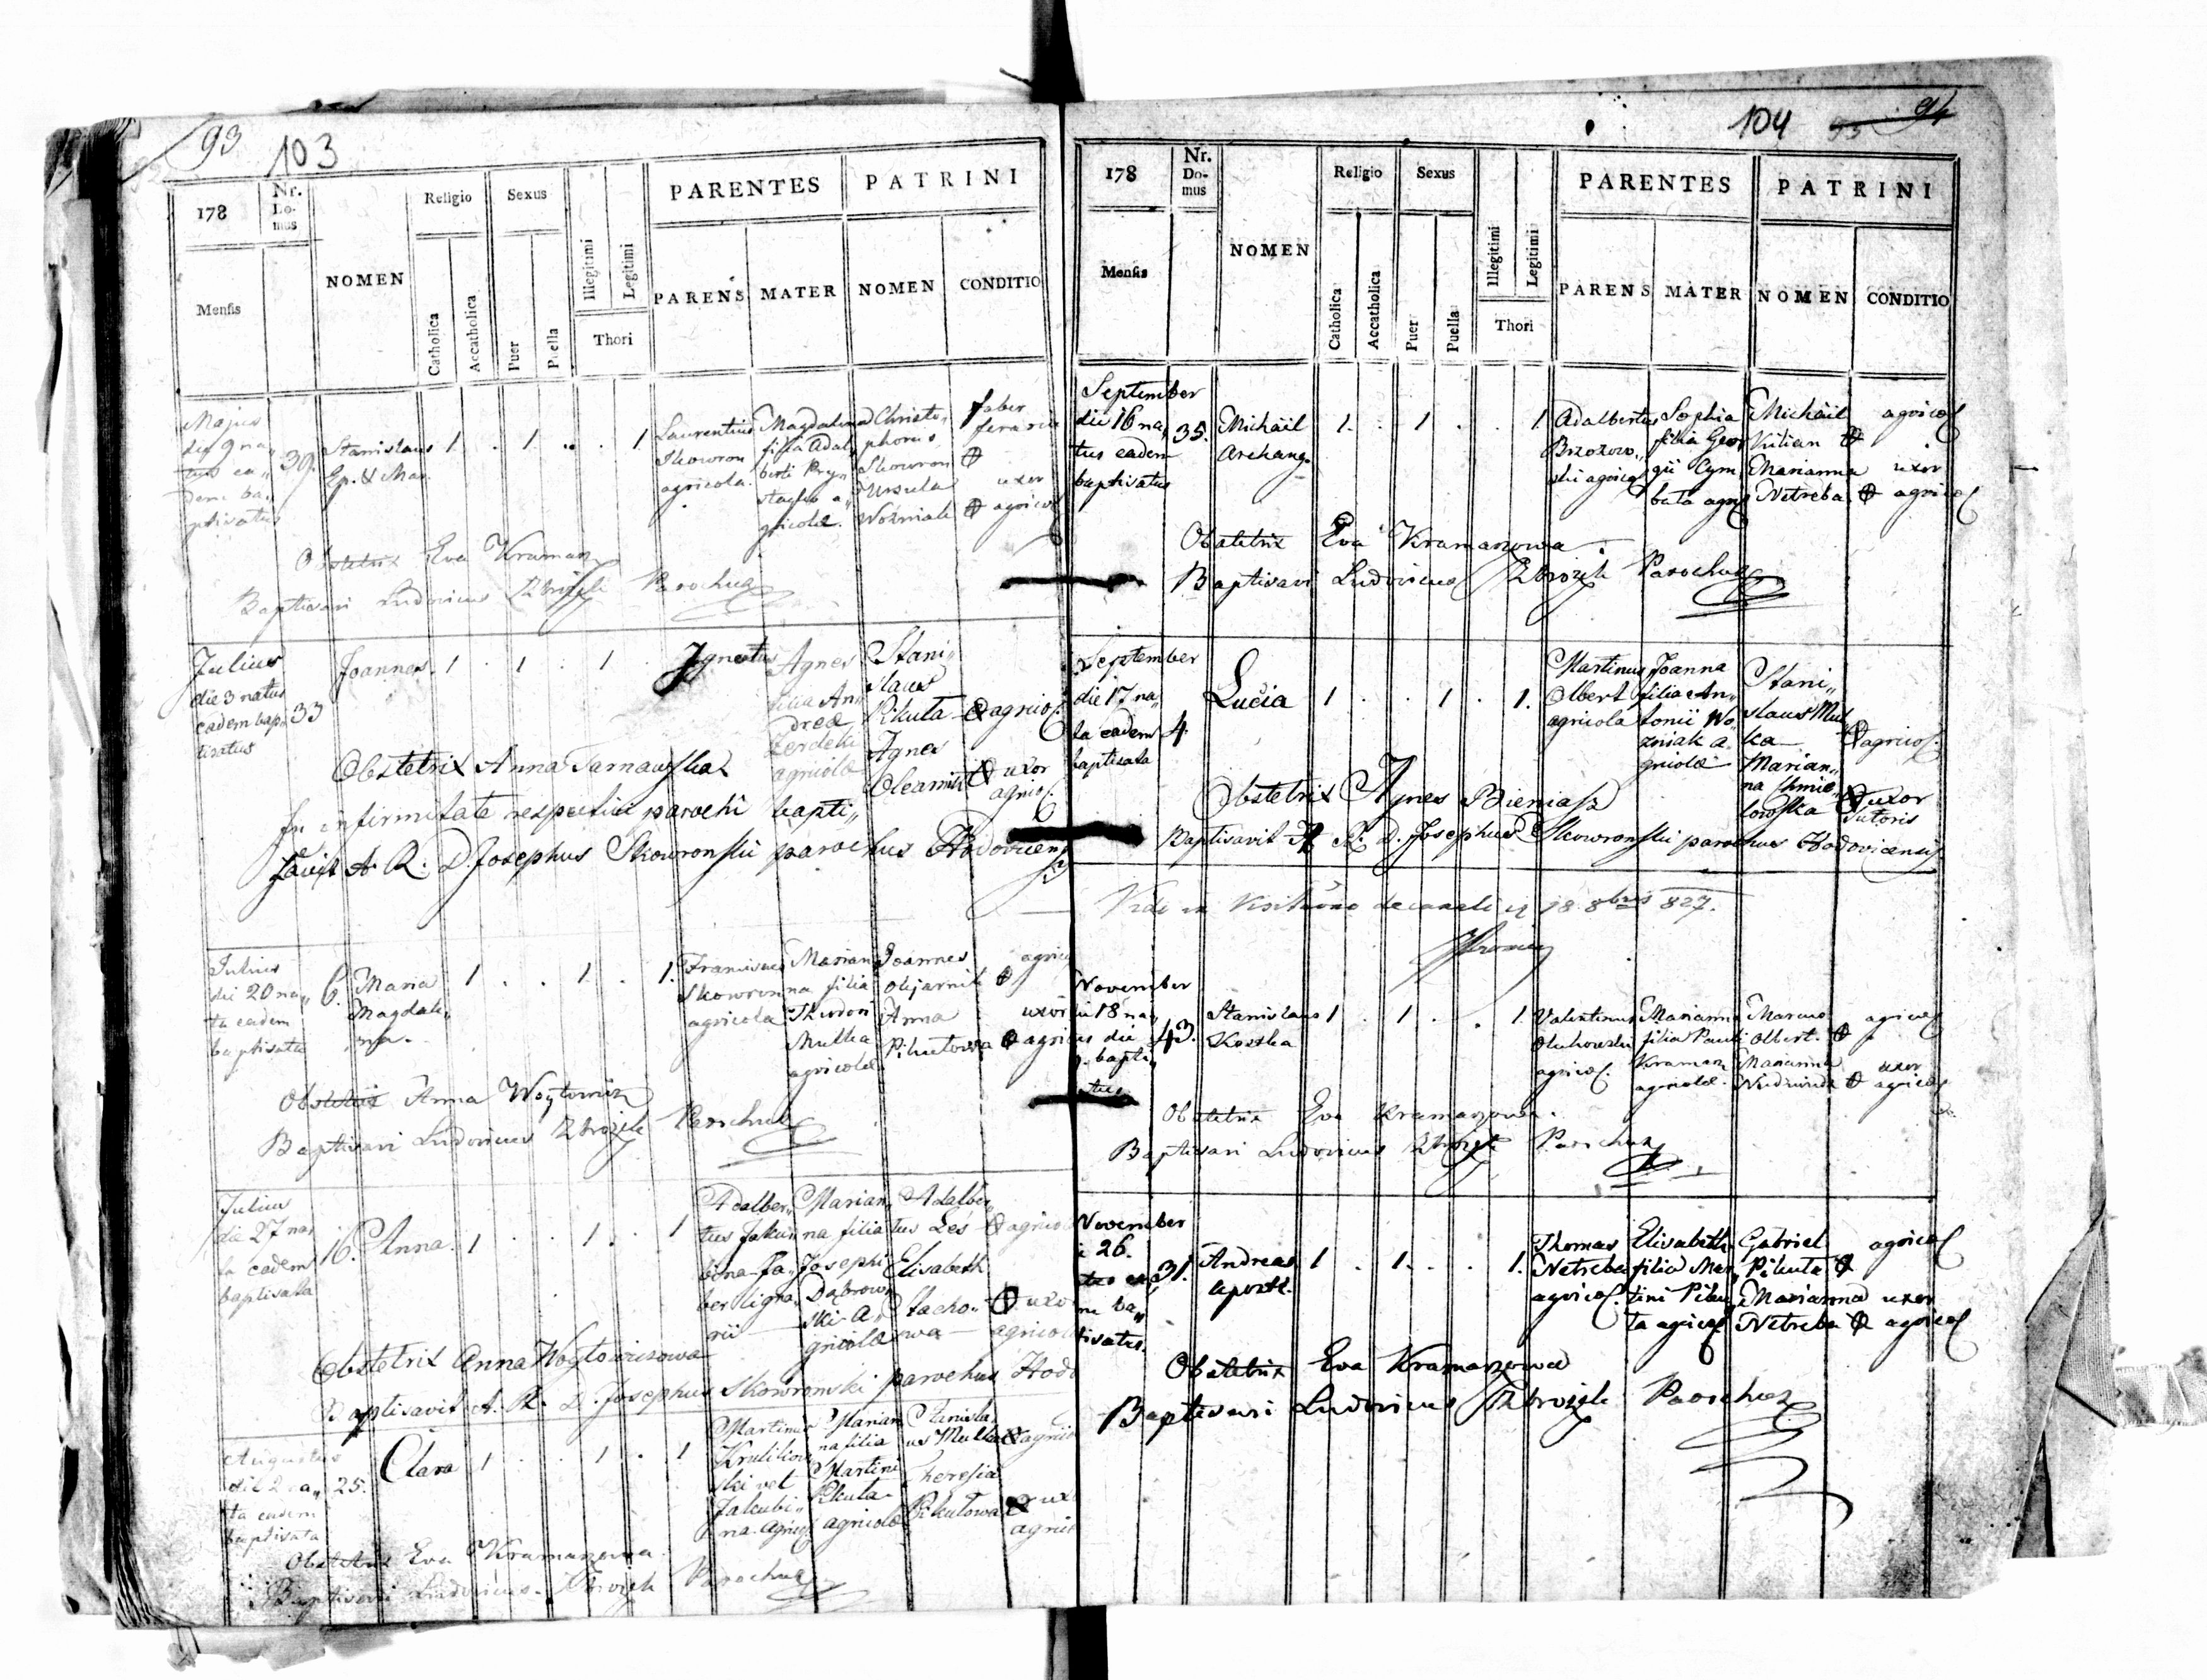 93 103
178
Nr. Do-mus
NOMEN
Religio
Sexus
PARENTES
PATRINI
Mensis
Catholica
Accatholica
Puer
Puella
Illegitimi
Legitimi
Thori
PARENS
MATER
NOMEN
CONDITIO
Majus
die 9 na„
tus ea„
dem ba„
ptisatus
39.
Stanislaus
Ep. & Mar.
1 . 1 . . 1
Laurentius
Skowron
agricola.
Magdalena
filia Adal„
berti
agricolæ.
Christo„
phorus
Skowron
Ursula
Woźniak
faber
ferrarius
uxor
agricol
Obstetrix Eva Kramarz
Baptisavi Ludovicus Zbrożek Parochus
Julius
die 3 natus
eadem bap„
tisatus
33
Joannes.
1 . 1 . 1 .
Ignotus
Agnes
filia An„
dreæ
agricolæ
Stani„
slaus
Pikuta
Agnes
agricol.
uxor
agricol.
Obstetrix Anna Tarnawska
In infirmitate respectivi parochi bapti„
savit A. R. D. Josephus Skowronski parochus Hodovicensis
Julius
die 20 na„
ta eadem
baptisata
6.
Maria
Magdale„
na.
1 . . 1 . 1.
Franciscus
Skowron
agricola
Marian
na filia
Theodori
Mulka
agricolæ
Joannes
Olejarnik
Anna
Pikutowa
agricol
uxor
agricol
Obstetrix Anna Woytowicz
Baptisavi Ludovicus Zbrożek Parochus
Julius
die 27 na„
ta eadem
baptisata
16.
Anna
1 . . 1 . 1
Adalber„
tus Jaku
bina fa„
ber ligna„
rii
Marian„
na filia
Josephi
Dąbrow
ski a„
gricolæ
Adalber„
tus Les
Elisabeth
Stacho„
wa
agricol
uxo
agricol
Obstetrix Anna Woytowiczowa
Baptisavit A. R. D. Josephus Skowronski parochus Hodo
Augustus
die 2 na„
ta eadem
baptisata
25.
Clara
1 . . 1 . 1
Martinus
Krulikow
ski vel
Jakubi„
na agricol
Marian
na filia
Martini
Pikuta
agricolæ
Stanisla„
us Mulka
Theresia
Pikutowa
agricol
ux
agricol
Obstetrix Eva Kramarzowa
Baptisavi Ludovicus Zbrożek Parochus
104 94
178
Nr. Do-mus
NOMEN
Religio
Sexus
PARENTES
PATRINI
Mensis
Catholica
Accatholica
Puer
Puella
Illegitimi
Legitimi
Thori
PARENS
MATER
NOMEN
CONDITIO
September
die 16 na„
tus eadem
baptisatus
35.
Michäil
Archang.
1. . 1 . . 1
Adalbertus
Brzozow„
ski agricol
Sophia
filia Geor
gii Cym
bała agric
Michäil
Kilian
Marianna
Netreba.
agricol
uxor
agricol
Obstetrix Eva Kramarzowa.
Baptisavi Ludovicus Zbrożek Parochus
September
die 17 na„
ta eadem
baptisata
4.
Lucia
1 . . 1 . 1.
Martinus
Olbert
agricola
Joanna
filia An„
tonii Wo„
zniak a„
gricolæ
Stani„
slaus Mul
ka
Marian„
na Chmie„
lowska
agricol.
uxor
sutoris
Obstetrix Agnes Bieniasz
Baptisavit A. R. D. Josephus Skowronski parochus Hodovicensis
Vidi in Visitatione decanali 18 8bris 827.
November
die 18 na„
tus die
bapti„
tus
43.
Stanislaus
Kostka
1 . 1 . . 1
Valentinus
agricol.
Marianna
filia Pauli
Kramarz
agricolæ.
Marcus
Olbert.
Marianna
agricol
uxor
agricol
Obstetrix Eva Kramarzowa.
Baptisavi Ludovicus Zbrożek Parochus
November
26.
ba„
tisatus.
31.
Andreas
Apostl.
1 . 1. . . 1.
Thomas
Netreba
agricol.
Elisabeth
filia Mar„
tini Piku„
ta agricol
Gabriel
Pikuta
Marianna
Netreba
agricol
uxor
agricol
Obstetrix Eva Kramarzowa
Baptisavi Ludovicus Zbrożek Parochus